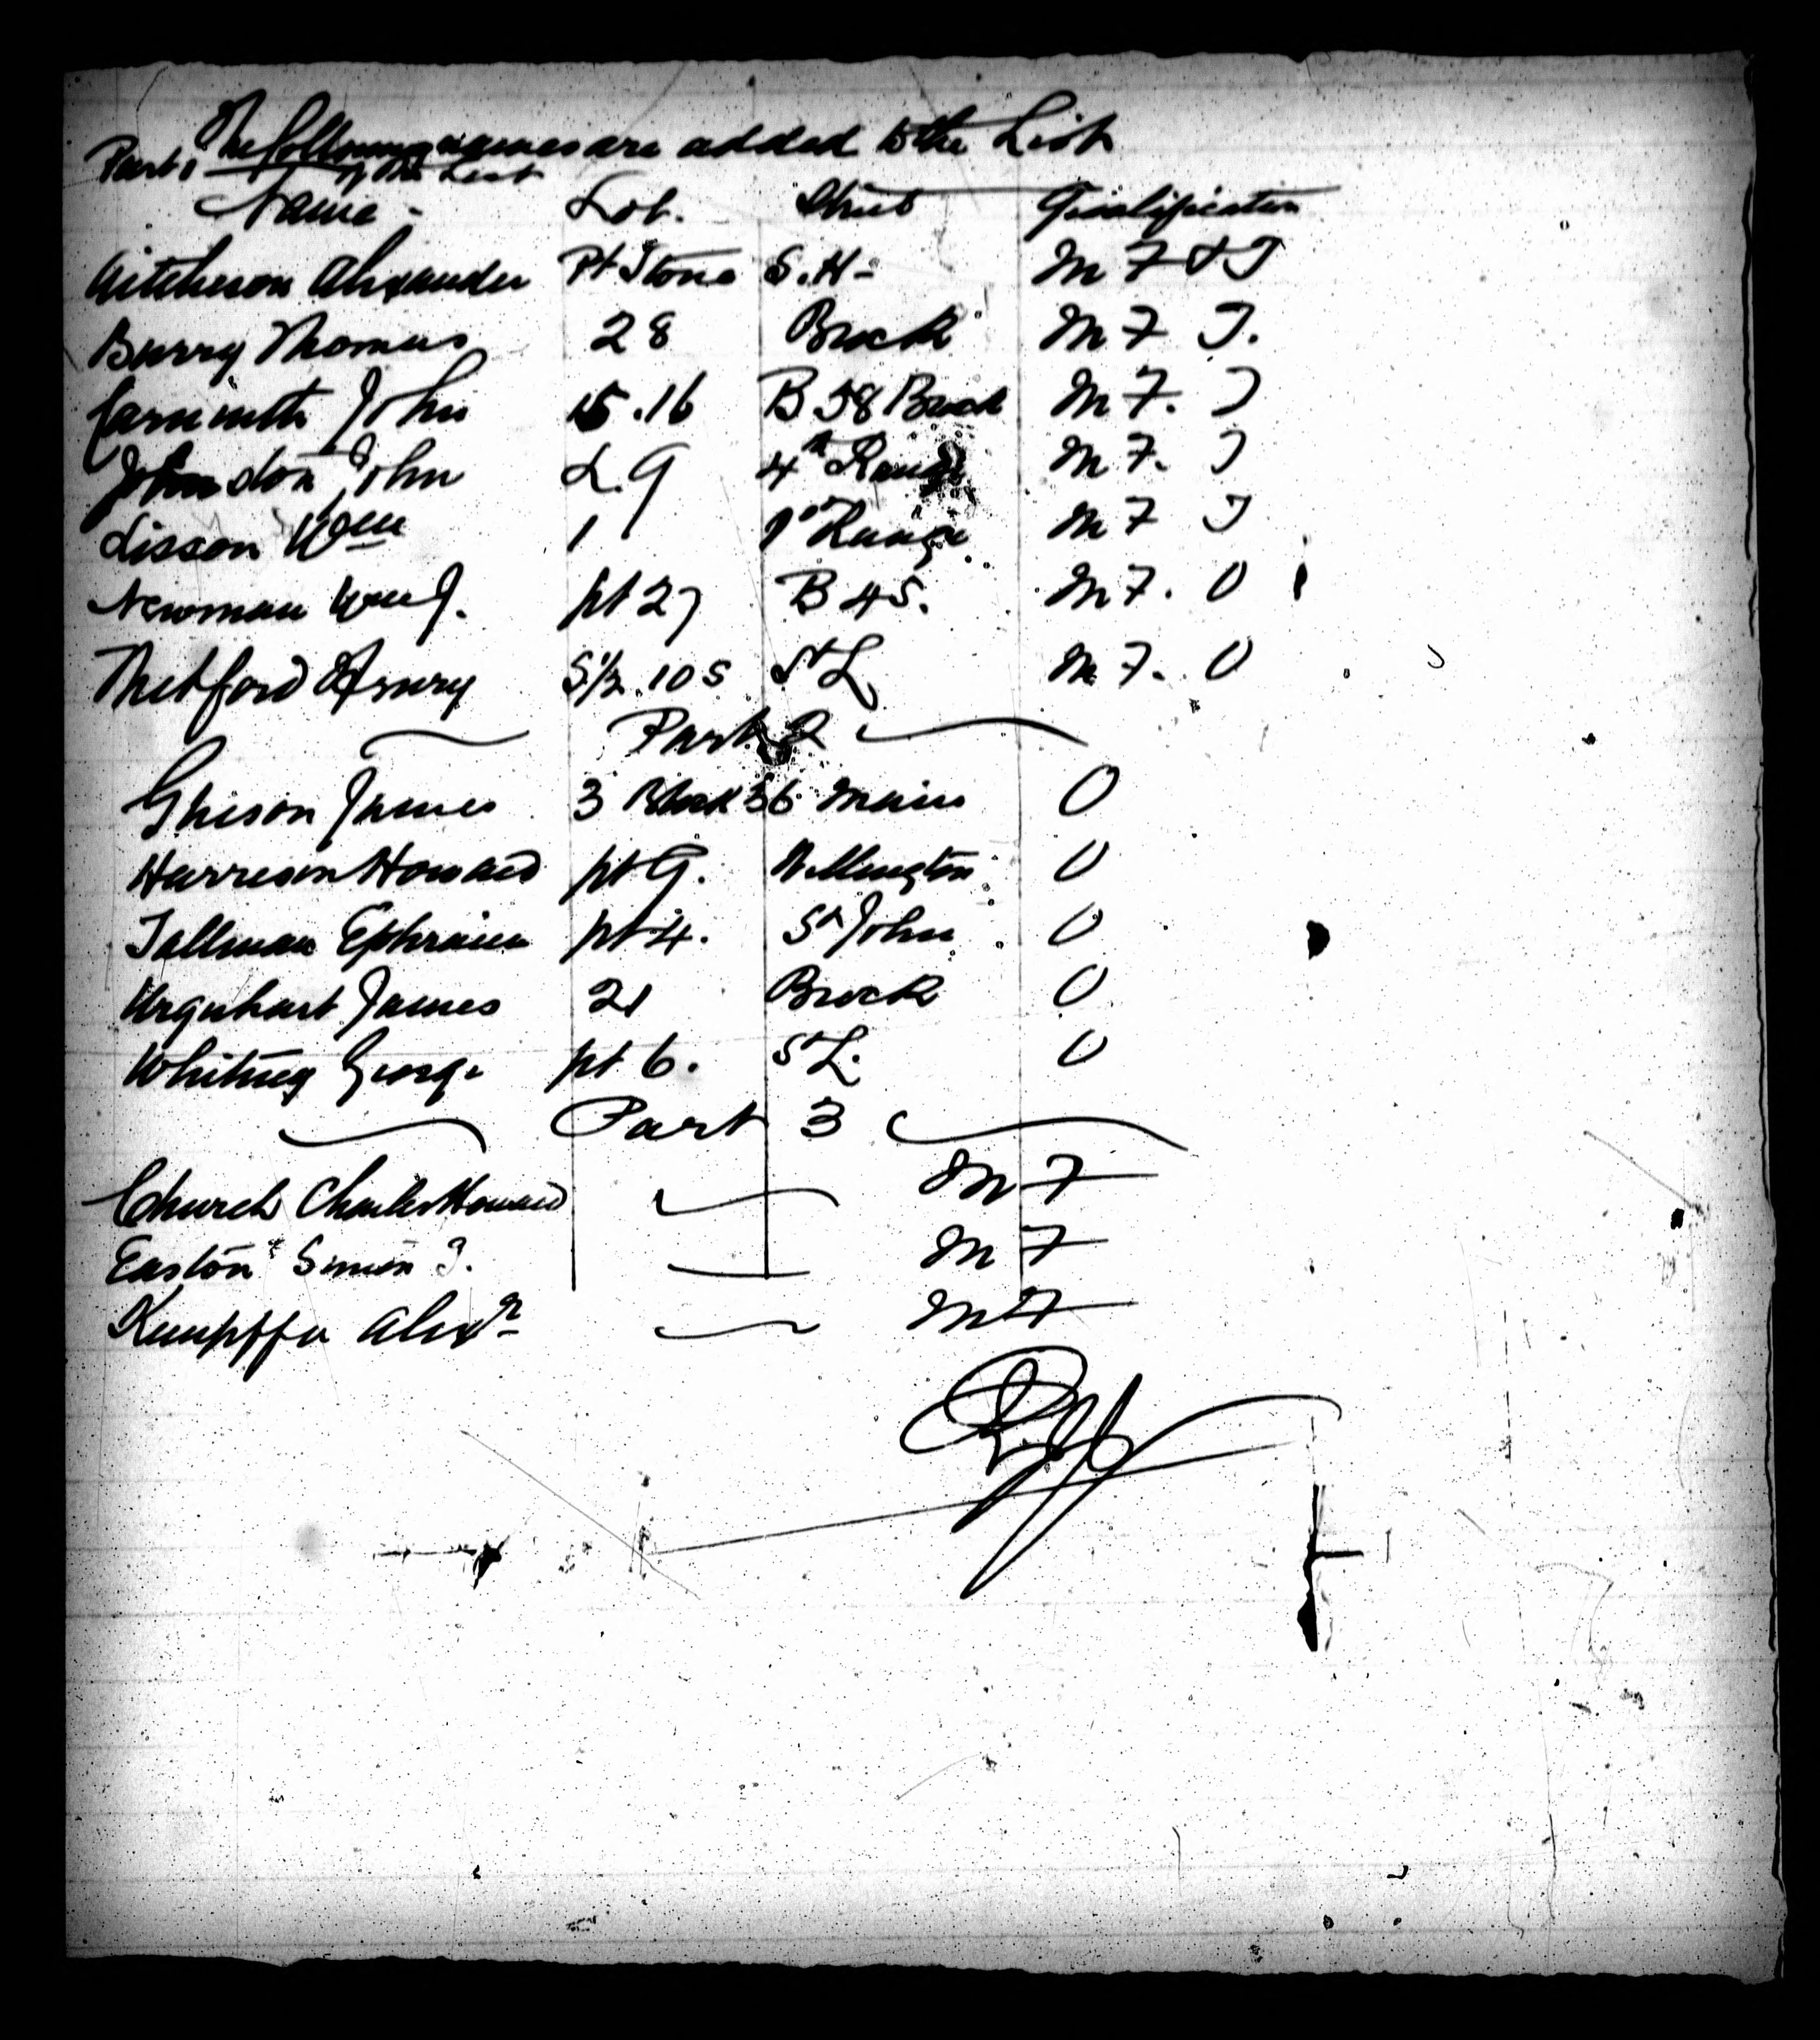 The following names are added to the List
Part 1 of the List
Name - Lot. Street Qualification
Aitcheson Alexander Pt Stone S. H - M F & T
Barry Thomas 28 Brock M F T.
John 15.16 B 58 Brock M F. T
Johnston John L. 9 4th Range M F. T
Lisson Wm 1 1st Range M F T
Newman Wm J. pt 27 B 45. M F. O
Thetford Henry S 1/2 . 10 S St L. M F. O
Part 2
James 3 Block 36 Main O
Harrison Howard pt 9. Wellington O
Tallman Ephraim pt 4. St John O
Urquhart James 21 Brock O
Whitney George pt 6. St L. O
Part 3
Church Charles Howard M F
Easton Simon T. M F
Kempffer Alexr M F